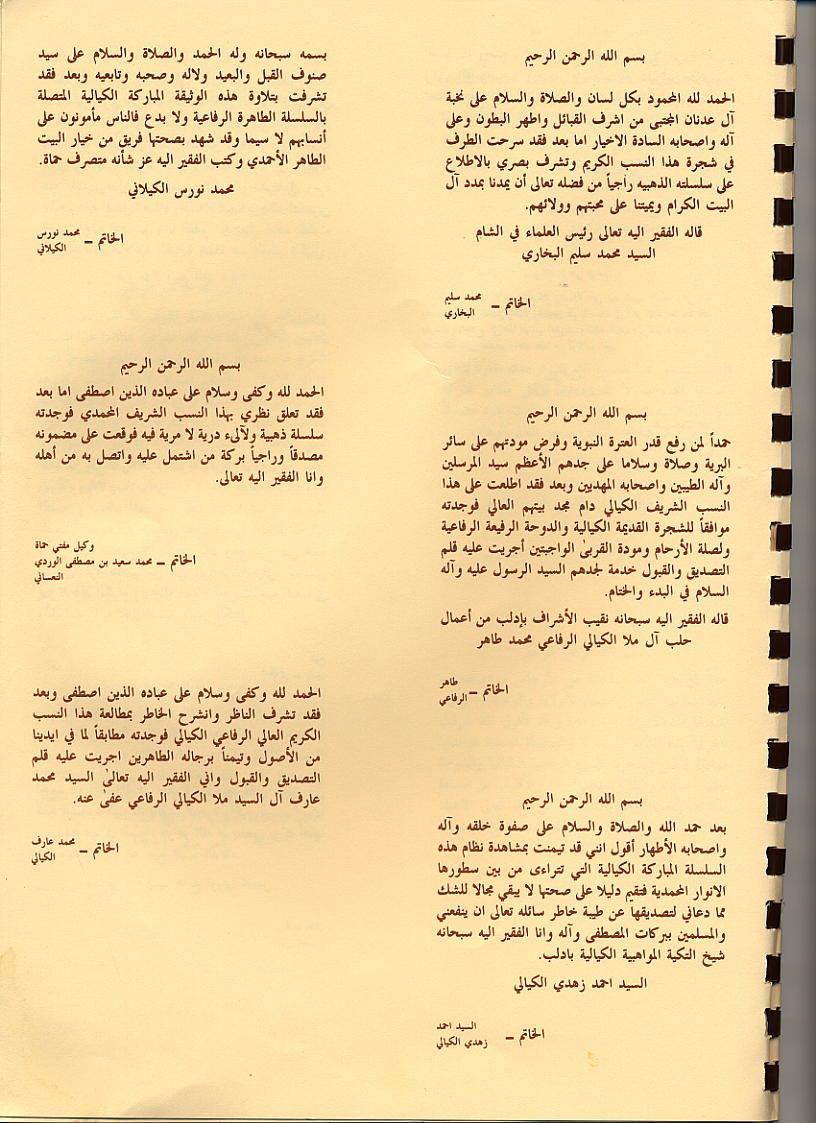 بسم الله الرحمن الرحيم
الحمد لله المحمود بكل لسان والصلاة والسلام على نخبة
آل عدنان المجتبى من اشرف القبائل واطهر البطون وعلى
آله واصحابه السادة الاخيار اما بعد فقد سرحت الطرف
في شجرة هذا النسب الكريم وتشرف بصري بالاطلاع
على سلسلته الذهبيه راجياً من فضله تعالى أن يمدنا بمدد آل
البيت الكرام ويميتنا على محبتهم وولائهم.
قاله الفقير اليه تعالى رئيس العلماء في الشام
السيد محمد سليم البخاري
الخاتم – محمد سليم
البخاري
بسم الله الرحمن الرحيم
حمداً لمن رفع قدر العترة النبوية وفرض مودتهم على سائر
البرية وصلاة وسلاما على جدهم الأعظم سيد المرسلين
وآله الطيبين واصحابه المهديين وبعد فقد اطلعت على هذا
النسب الشريف الكيالي دام مجد بيتهم العالي فوجدته
موافقاً للشجرة القديمة الكيالية والدوحة الرفيعة الرفاعية
ولصلة الأرحام ومودة القربىٰ الواجبتين أجريت عليه قلم
التصديق والقبول خدمة لجدهم السيد الرسول عليه وآله
السلام في البدء والختام.
قاله الفقير اليه سبحانه نقيب الأشراف بإدلب من أعمال
حلب آل ملا الكيالي الرفاعي محمد طاهر
الخاتم – طاهر
الرفاعي
بسم الله الرحمن الرحيم
بعد حمد الله والصلاة والسلام على صفوة خلقه وآله
واصحابه الأطهار أقول انني قد تيمنت بمشاهدة نظام هذه
السلسلة المباركة الكيالية التي تتراءى من بين سطورها
الانوار المحمدية فتقيم دليلا على صحتها لا يبقي مجالا للشك
مما دعاني لتصديقها عن طيبة خاطر سائله تعالى ان ينفعني
والمسلمين ببركات المصطفى وآله وانا الفقير اليه سبحانه
شيخ التكية المواهبية الكيالية بادلب.
السيد احمد زهدي الكيالي
الخاتم – السيد احمد
زهدي الكيالي
بسمه سبحانه وله الحمد والصلاة والسلام على سيد
صنوف القبل والبعيد ولاله وصحبه وتابعيه وبعد فقد
تشرفت بتلاوة هذه الوثيقة المباركة الكيالية المتصلة
بالسلسلة الطاهرة الرفاعية ولا بدع فالناس مأمونون على
أنسابهم لا سيما وقد شهد بصحتها فريق من خيار البيت
الطاهر الأحمدي وكتب الفقير اليه عز شأنه متصرف حماة.
محمد نورس الكيلاني
الخاتم – محمد نورس
الكيلاني
بسم الله الرحمن الرحيم
الحمد لله وكفى وسلام على عباده الذين اصطفى اما بعد
فقد تعلق نظري بهذا النسب الشريف المحمدي فوجدته
سلسلة ذهبية ولآلىء درية لا مرية فيه فوقعت على مضمونه
مصدقاً وراجياً بركة من اشتمل عليه واتصل به من أهله
وانا الفقير اليه تعالى.
وكيل مفتي حماة
الخاتم – محمد سعيد بن مصطفى الوردي
النعساني
الحمد لله وكفى وسلام على عباده الذين اصطفى وبعد
فقد تشرف الناظر وانشرح الخاطر بمطالعة هذا النسب
الكريم العالي الرفاعي الكيالي فوجدته مطابقاً لما في ايدينا
من الأصول وتيمناً برجاله الطاهرين اجريت عليه قلم
التصديق والقبول واني الفقير اليه تعالىٰ السيد محمد
عارف آل السيد ملا الكيالي الرفاعي عفىٰ عنه.
الخاتم – محمد عارف
الكيالي